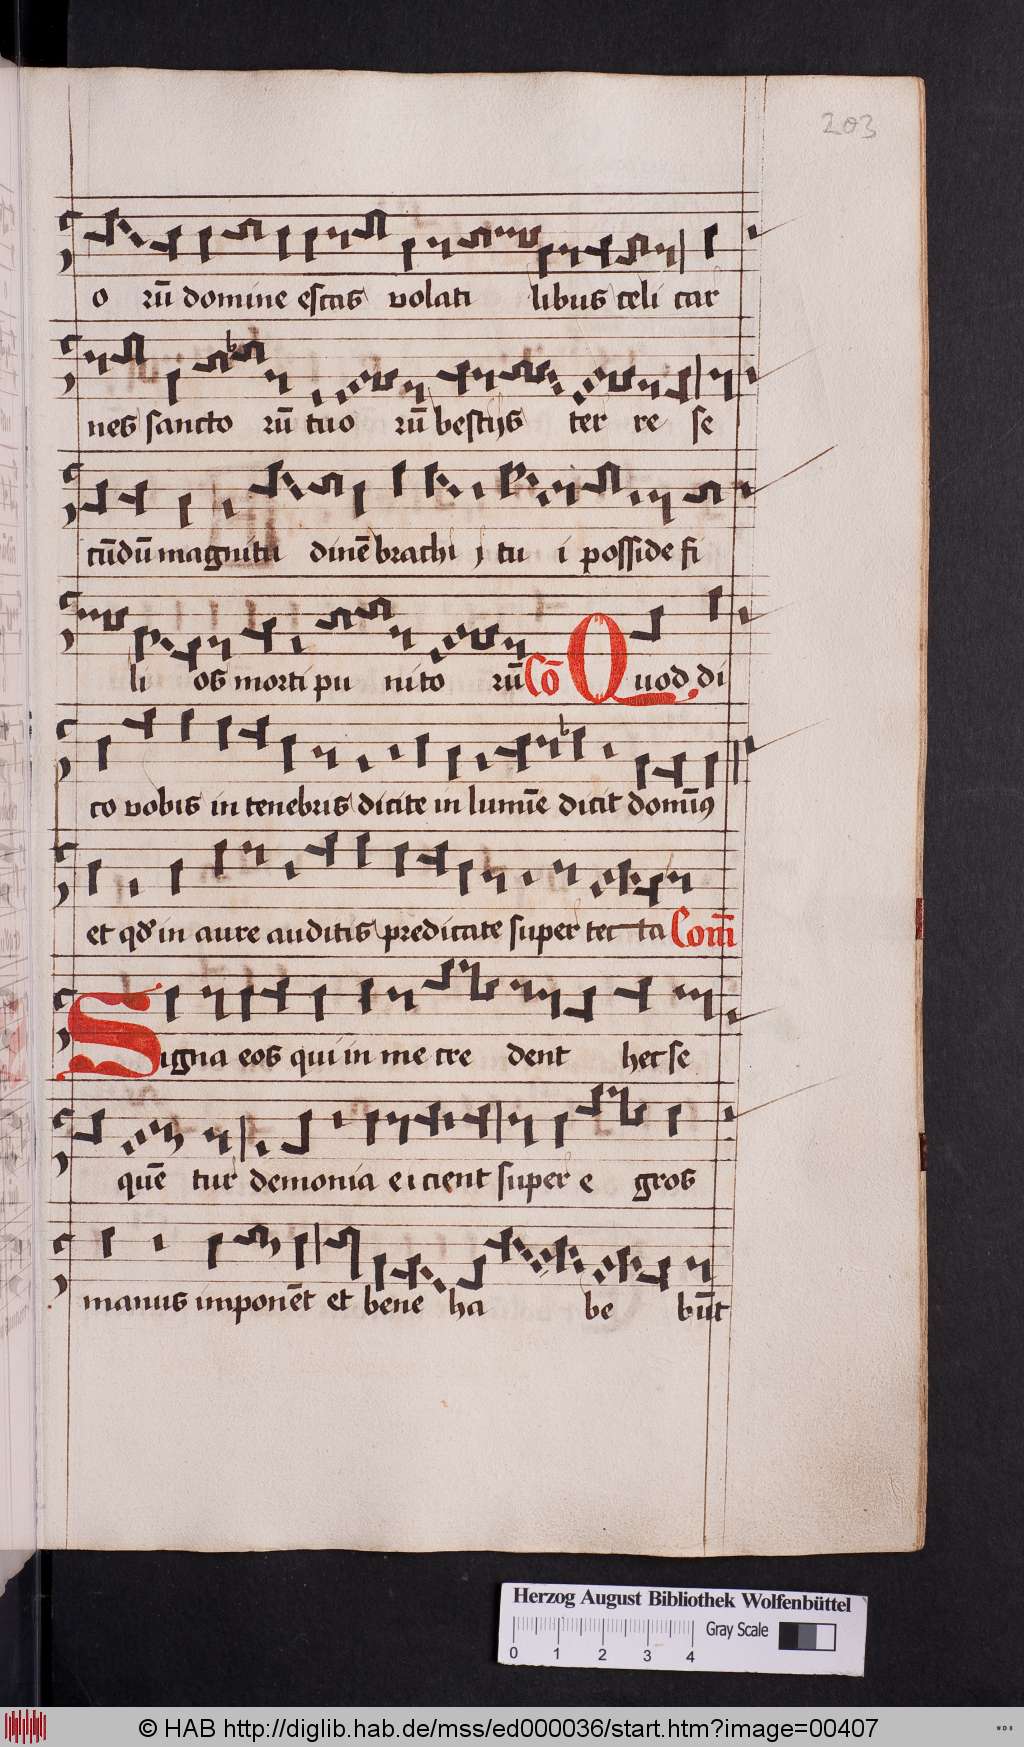 203
o rū domine escas volati libus celi car
nes sancto rū tuo rū bestijs ter re se
cūdū magnitu dinē brachi j tu i posside fi
li os morti pu nito rū Cō Quod di
co vobis in tenebris dicite in lumīe dicit domīꝯ
et qđ in aure auditis predicate super tec ta Com̄
Signa eos qui in me cre dent hec se
quē tur demonia eicient super e gros
manus imponēt et bene ha be būt
Herzog August Bibliothek Wolfenbüttel
Gray Scale
0 1 2 3 4
© HAB http://diglib.hab.de/mss/ed000036/start.htm?image=00407